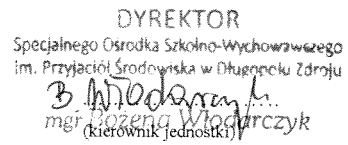 DYREKTOR
Specjalnego Ośrodka Szkolno-Wychowawczego
im. Przyjaciół Środowiska w Długopolu Zdroju
B Włodarczyk
mgr Bożena Włodarczyk
(kierownik jednostki)